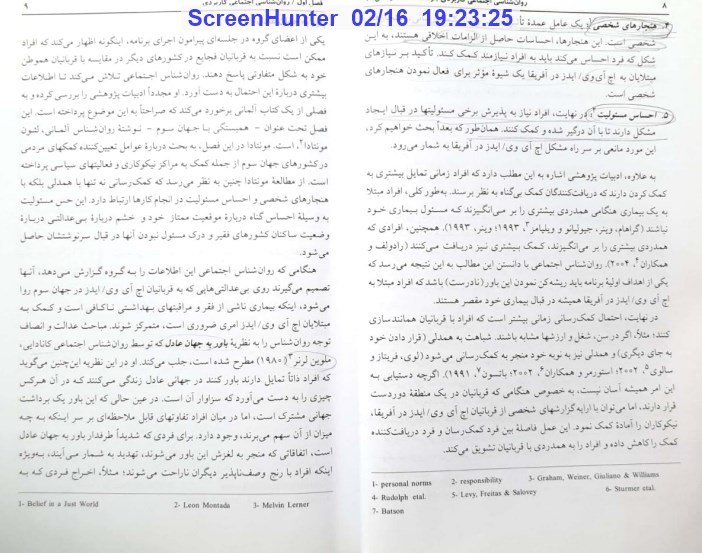 ScreenHunter 02/16 19:23:25
۸
روان‌شناسی اجتماعی کاربردی
۴. هنجارهای شخصی
شخصی است. این هنجارها، احساسات حاصل از الزامات اخلاقی هستند، به این
شکل که فرد احساس می‌کند باید به افراد نیازمند کمک کند. تأکید بر نیازهای
مبتلایان به اچ آی‌وی/ ایدز در آفریقا یک شیوهٔ مؤثر برای فعال نمودن هنجارهای
شخصی است.
۵. احساس مسئولیت۲. در نهایت، افراد نیاز به پذیرش برخی مسئولیتها در قبال ایجاد
مشکل دارند تا با آن درگیر شده و کمک کنند. همان‌طور که بعداً بحث خواهیم کرد،
این مورد مانعی بر سر راه مشکل اچ آی‌وی/ ایدز در آفریقا به شمار می‌رود.
به علاوه، ادبیات پژوهشی اشاره به این مطلب دارد که افراد زمانی تمایل بیشتری به
کمک کردن دارند که دریافت‌کنندگان کمک بی‌گناه به نظر برسند. به‌طور کلی، افراد مبتلا
به یک بیماری هنگامی همدردی بیشتری را بر می‌انگیزند که مسئول بیماری خود
نباشند (گراهام، وینر، جیولیانو و ویلیامز۳، ۱۹۹۳؛ وینر، ۱۹۹۳). همچنین، افرادی که
همدردی بیشتری را بر می‌انگیزند، کمک بیشتری نیز دریافت می‌کنند (رادولف و
همکاران۴، ۲۰۰۴). روان‌شناس اجتماعی با دانستن این مطالب به این نتیجه می‌رسد که
یکی از اهداف اولیهٔ برنامه باید ریشه‌کن نمودن این باور (نادرست) باشد که افراد مبتلا به
اچ آی‌وی/ ایدز در آفریقا همیشه در قبال بیماری خود مقصر هستند.
در نهایت، احتمال کمک‌رسانی زمانی بیشتر است که افراد با قربانیان همانندسازی
کنند؛ مثلاً، اگر در سن، شغل و ارزشها مشابه باشند. شباهت به همدلی (قرار دادن خود
به جای دیگری) و همدلی نیز به نوبه خود منجر به کمک‌رسانی می‌شود (لوی، فریتاز و
سالووی۵، ۲۰۰۲؛ استورمر و همکاران۶، ۲۰۰۲؛ باتسون۷، ۱۹۹۱). اگرچه دستیابی به
این امر همیشه آسان نیست، به خصوص هنگامی که قربانیان در یک منطقهٔ دوردست
قرار دارند، اما می‌توان با ارایه گزارشهای شخصی از قربانیان اچ آی‌وی/ ایدز در آفریقا،
نیکوکاران را آمادهٔ کمک نمود. این عمل فاصلهٔ بین فرد کمک‌رسان و فرد دریافت‌کننده
کمک را کاهش داده و افراد را به همدردی با قربانیان تشویق می‌کند.
1- personal norms 2- responsibility 3- Graham, Weiner, Giuliano & Williams
4- Rudolph etal. 5- Levy, Freitas & Salovey 6- Sturmer etal.
7- Batson
فصل اول / روان‌شناسی اجتماعی کاربردی
۹
یکی از اعضای گروه در جلسه‌ای پیرامون اجرای برنامه، اینگونه اظهار می‌کند که افراد
ممکن است نسبت به قربانیان فجایع در کشورهای دیگر در مقایسه با قربانیان هموطن
خود به شکل متفاوتی پاسخ دهند. روان‌شناس اجتماعی تلاش می‌کند تا اطلاعات
بیشتری دربارهٔ این احتمال به دست آورد. او مجدداً ادبیات پژوهشی را بررسی کرده و به
فصلی از یک کتاب آلمانی برخورد می‌کند که صراحتاً به این موضوع پرداخته است. این
فصل تحت عنوان – همبستگی با جهان سوم – نوشتهٔ روان‌شناس آلمانی، لئون
مونتادا۲، است. مونتادا در این فصل، به بحث دربارهٔ عوامل تعیین‌کننده کمکهای مردمی
در کشورهای جهان سوم از جمله کمک به مراکز نیکوکاری و فعالیتهای سیاسی پرداخته
است. از مطالعهٔ مونتادا چنین به نظر می‌رسد که کمک‌رسانی نه تنها با همدلی بلکه با
هنجارهای شخصی و احساس مسئولیت در انجام کارها ارتباط دارد. این حس مسئولیت
به وسیلهٔ احساس گناه دربارهٔ موقعیت ممتاز خود و خشم دربارهٔ بی‌عدالتی دربارهٔ
وضعیت ساکنان کشورهای فقیر و درک مسئول نبودن آنها در قبال سرنوشتشان حاصل
می‌شود.
هنگامی که روان‌شناس اجتماعی این اطلاعات را به گروه گزارش می‌دهد، آنها
تصمیم می‌گیرند روی بی‌عدالتی‌هایی که به قربانیان اچ آی‌وی/ ایدز در جهان سوم روا
می‌شود، اینکه بیماری ناشی از فقر و مراقبتهای بهداشتی ناکافی است و کمک به
مبتلایان اچ آی‌وی/ ایدز امری ضروری است، متمرکز شوند. مباحث عدالت و انصاف
توجه روان‌شناس را به نظریهٔ باور به جهان عادل که توسط روان‌شناس اجتماعی کانادایی،
ملوین لرنر۳ (۱۹۸۰) مطرح شده است، جلب می‌کند. او در این نظریه این‌چنین می‌گوید
که افراد ذاتاً تمایل دارند باور کنند در جهانی عادل زندگی می‌کنند که در آن هرکس
چیزی را به دست می‌آورد که سزاوار آن است. در عین حالی که این باور یک برداشت
جهانی مشترک است، اما در میان افراد تفاوتهای قابل ملاحظه‌ای بر سر اینکه به چه
میزان از آن سهم می‌برند، وجود دارد. برای فردی که شدیداً طرفدار باور به جهان عادل
است، اتفاقاتی که منجر به لغزش این باور می‌شوند، تهدید به شمار می‌آیند، به‌ویژه
اینکه افراد با رنج وصف‌ناپذیر دیگران ناراحت می‌شوند؛ مثلاً، اخراج فردی که به
1- Belief in a Just World 2- Leon Montada 3- Melvin Lerner